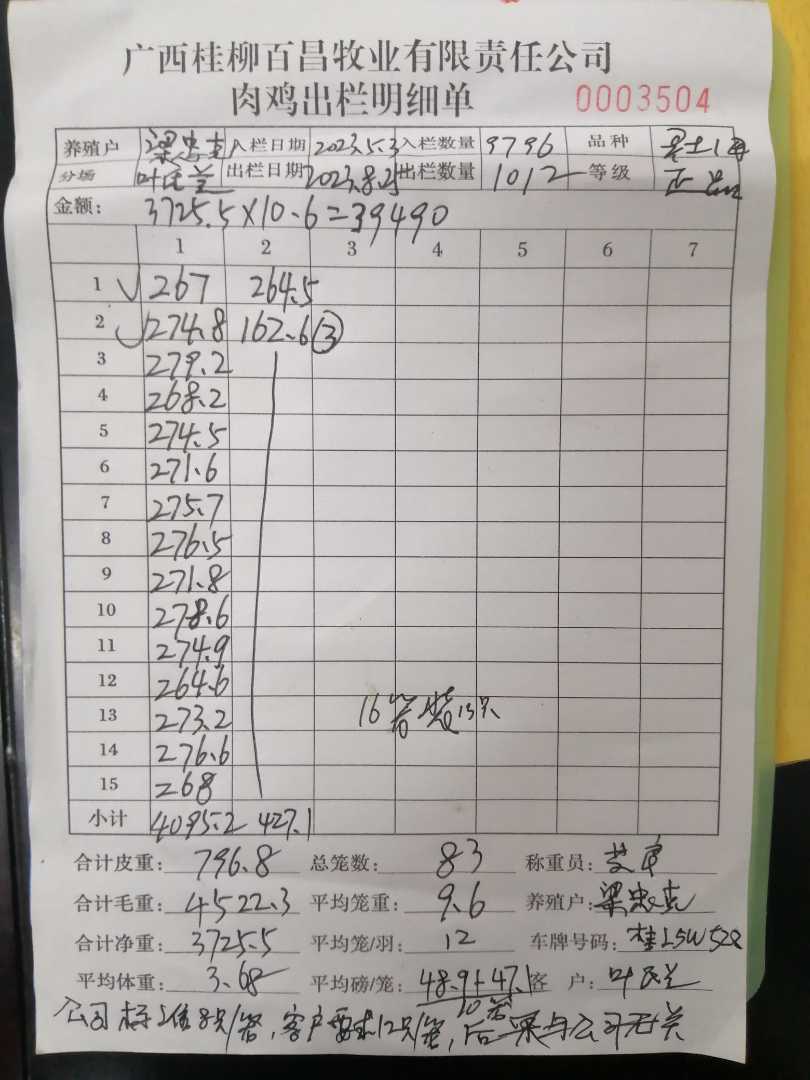 广西桂柳百昌牧业有限责任公司
肉鸡出栏明细单 0003504
养殖户 梁忠克 入栏日期 2023.5.3 入栏数量 9796 品种
分场 叶氏兰 出栏日期 2023.8.25 出栏数量 1012 等级 正品
金额: 3725.5×10.6=39490
1 2 3 4 5 6 7
1 √ 267 264.5
2 √ 274.8 162.6 ③
3 279.2
4 268.2
5 274.5
6 271.6
7 275.7
8 276.5
9 271.8
10 278.6
11 274.9
12 264.6
13 273.2 16笼装13只
14 276.6
15 268
小计 4095.2 427.1
合计皮重: 796.8 总笼数: 83 称重员:
合计毛重: 4522.3 平均笼重: 9.6 养殖户: 梁忠克
合计净重: 3725.5 平均笼/羽: 12 车牌号码: 桂L5W522
平均体重: 3.68 平均磅/笼: 48.9+47.1 客户: 叶氏兰
10笼
公司标准8只/笼,客户要求12只/笼,后果与公司无关